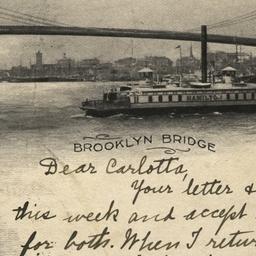 HAMILTON
BROOKLYN BRIDGE
Dear Carlotta,
Your letter &
this week and accept
for both. When I retur